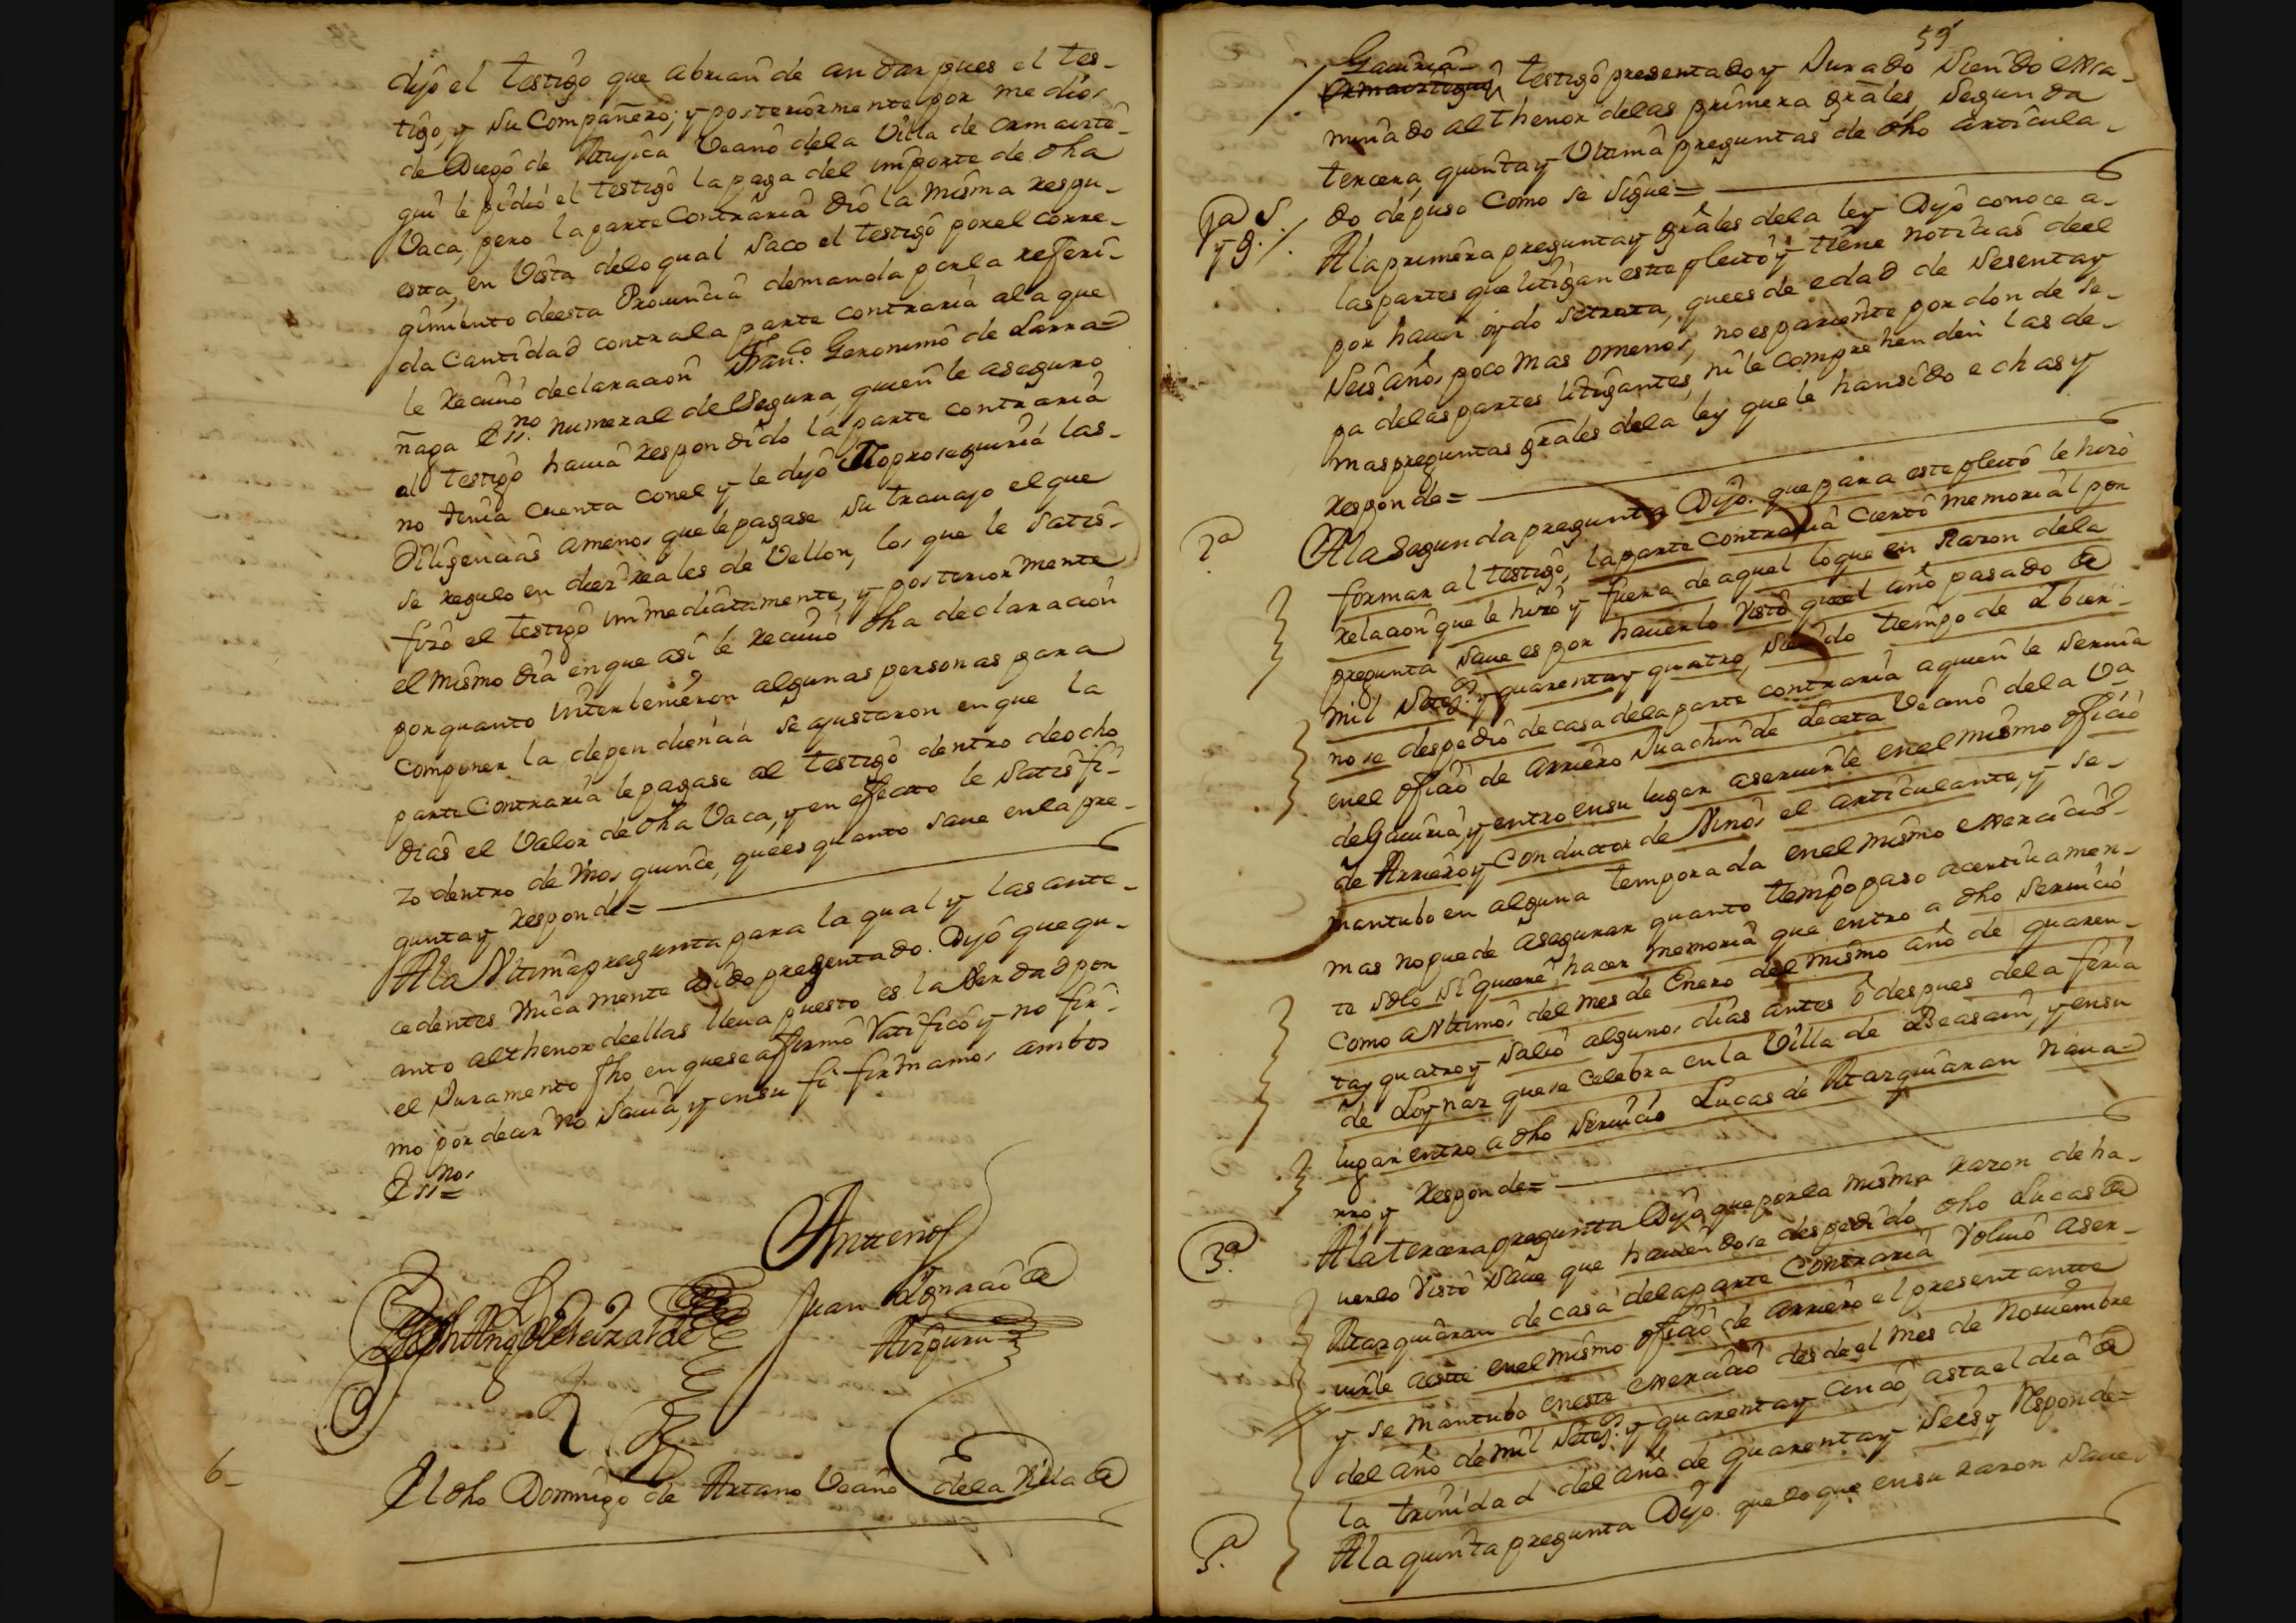 dijo el testigo que abrian de andar pues el tes-
tigo, y su Compañero; y posteriormente por medio,
de Diego de Atujica Vecino dela Villa de ormaizte-
gui le pidió el testigo la paga del importe de dha
Vaca, pero la parte Contraria dio la misma respu-
esta, en Vista delo qual saco el testigo por el corre-
gimiento deesta Provincia demanda por la referi-
da Cantidad contra la parte contraria ala que
le reciuio declaracion Franco Geronimo de Larra-
ñaga Essno numeral de Segura, quien le aseguro
al testigo hauia respondido la parte contraria
no tenia cuenta conel y le dijo no proseguiria las
Diligencias amenos que le pagase su trauajo el que
se regulo en diez reales de Vellon, los que le satis-
fizo el testigo immediatamente, y posteriormente
el mismo dia en que asi le reciuio dha declaracion
porquanto interbenieron algunas personas para
componer la dependiencia se ajustaron en que la
parte Contraria le pagase al testigo dentro deocho
dias el Valor de dha Vaca, y en efecto le satisfi-
zo dentro de unos quince, que es quanto saue enla pre-
gunta y responde=
Ala Vltima pregunta para la qual y las ante-
cedentes unicamente a sido presentado. Dijo que qu-
anto althenor deellas lleua puesto es la Verdad por
el Juramento fho en que se afirmo Ratifico y no fir-
mo por decir no sauia, y en su fe firmamos ambos
Essnos=
Antenos
Juan Ignacio de
Aizpuru
6-
El dho Domingo de Artano Vecino dela Villa de
59
Gauiria
Ormaiztegui testigo presentado y Jurado siendo exsa-
minado al thenor delas primera grales, segunda
tercera, quinta y Vltima preguntas de dho articula-
do depuso como se sigue=
1a S.
y g.
Ala primera pregunta y grales dela ley Dijo conoce a-
las partes que litigan este pleito y tiene noticias deel
por hauer oydo se trata, que es de edad de sesenta y
seis años poco mas omenos, no es pariente por donde se-
pa delas partes litigantes, ni le comprehenden las de-
mas preguntas grales dela ley que le han sido echas y
responde=
2a
Ala Segunda pregunta Dijo. que para este pleito le hizo
formar al testigo, la parte Contraria cierto memorial por
relacion que le hizo y fuera de aquel lo que en Razon dela
pregunta saue es por hauerlo Visto que el año pasado de
mil setecs y quarenta y quatro, siendo tiempo de Ibier-
no se despedio de casa dela parte contraria aquien le seruia
enel oficio de arriero Juachin de Leceta Vecino dela Va
de Gauiria, y entro ensu lugar aseruirle enel mismo oficio
de Arriero y Conductor de Vinos el articulante, y se-
mantubo en alguna temporada enel mismo exsercicio
mas nopuede asegurar quanto tiempo paso acertiuamen-
te solo si quiere hacer memoria que entro a dho seruicio
como a Vltimos del mes de Enero del mismo año de quaren-
tay quatro y salio algunos dias antes o despues dela feria
de Loynaz que se celebra en la Villa de Beasain, y ensu
lugar entro a dho seruicio Lucas de Atarquiaran naua-
rro y responde=
3a
Ala tercera pregunta Dijo que por la misma razon de ha-
uerlo Visto saue que hauiendose despedido dho Lucas de
Atarquiaran de casa dela parte Contraria Voluio aser-
uirle aeste enel mismo oficio de arriero el presentante
y se mantubo eneste exsercicio desde el mes de Nouiembre
del año de mil setecs y quarenta y cinco, asta el dia de
la trinidad del año de quarenta y seis y responde=
5a
Ala quinta pregunta Dijo. que lo que ensu razon saue